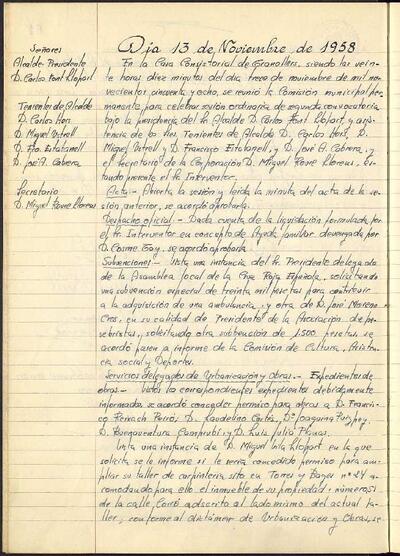 Señores
Alcalde-Presidente
D. Carlos Font Llopart
Tenientes de Alcalde
D. Carlos
D. Miguel Utrell
D. Fco Estabanell
D. José A. Cabrera
Secretario
D. Miguel Llorens
Dia 13 de Noviembre de 1958
En la Casa Consistorial de Granollers, siendo las vein-
te horas diez minutos del dia trece de noviembre de mil no-
vecientos cincuenta y ocho, se reunió la Comisión municipal per-
manente para celebrar sesión ordinaria de segunda convocatoria
bajo la presidencia del Sr Alcalde D Carlos Font Llopart y asis-
tencia de los Sres. Tenientes de Alcalde D. Carlos D.
Miguel Utrell y D Francisco Estabanell, y D. José A. Cabrera, y
el Secretario de la Corporación D. Miguel Llorens, es-
tando presente el Sr Interventor.
Acta - Abierta la sesión y leida la minuta del acta de la se-
sión anterior, se acordó aprobarla.
Despacho oficial - Dada cuenta de la liquidación formulada por
el Sr. Interventor en concepto de Ayuda familiar devengada por
D Cosme se acordó aprobarla
Subvenciones - Vista una instancia del Sr Presidente delegado
de la Asamblea local de la Cruz Roja Española, solicitando
una subvención especial de treinta mil pesetas para contribuir
a la adquisición de una ambulancia, y otra de D. José Moreno
Cros, en su calidad de Presidente de la Asociación de pe-
sebristas, solicitando otra subvención de 1,500 pesetas, se
acordó pasen a informe de la Comisión de Cultura, Asisten-
cia social y Deportes.
Servicios delegados de Urbanización y obras - Expedientes de
obras - Vistos los correspondientes expedientes debidamente
informados se acordó conceder permiso para obras a D. Francis-
co D. Laudelino Cortés, Dª Joaquina
D. Buenaventura Camprubí y D. Luis Juliá Planas.
Vista una instancia de D. Miguel Vila Llopart en la que
solicita se le informe si le seria concedido permiso para am-
pliar su taller de carpinteria sito en Torras y Bages nº 24 a-
comodando para ello el inmueble de su propiedad numeros
de la calle Corró adscrito al lado mismo del actual ta-
ller, conforme al dictámen de Urbanización y Obras, se